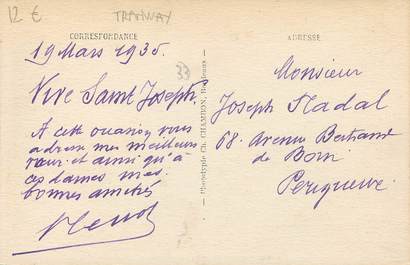 12 €
TRAMWAY
CORRESPONDANCE
ADRESSE
19 Mars 1935.
33
Vive Saint Joseph.
A cette occasion vous
adresse mes meilleurs
vœux et ainsi qu'à
ces dames mes
bonnes amitiés
Phototypie Ch. CHAMBON, Bordeaux
Monsieur
Joseph Nadal
68 Avenue Bertrand
de Born
Perigueux